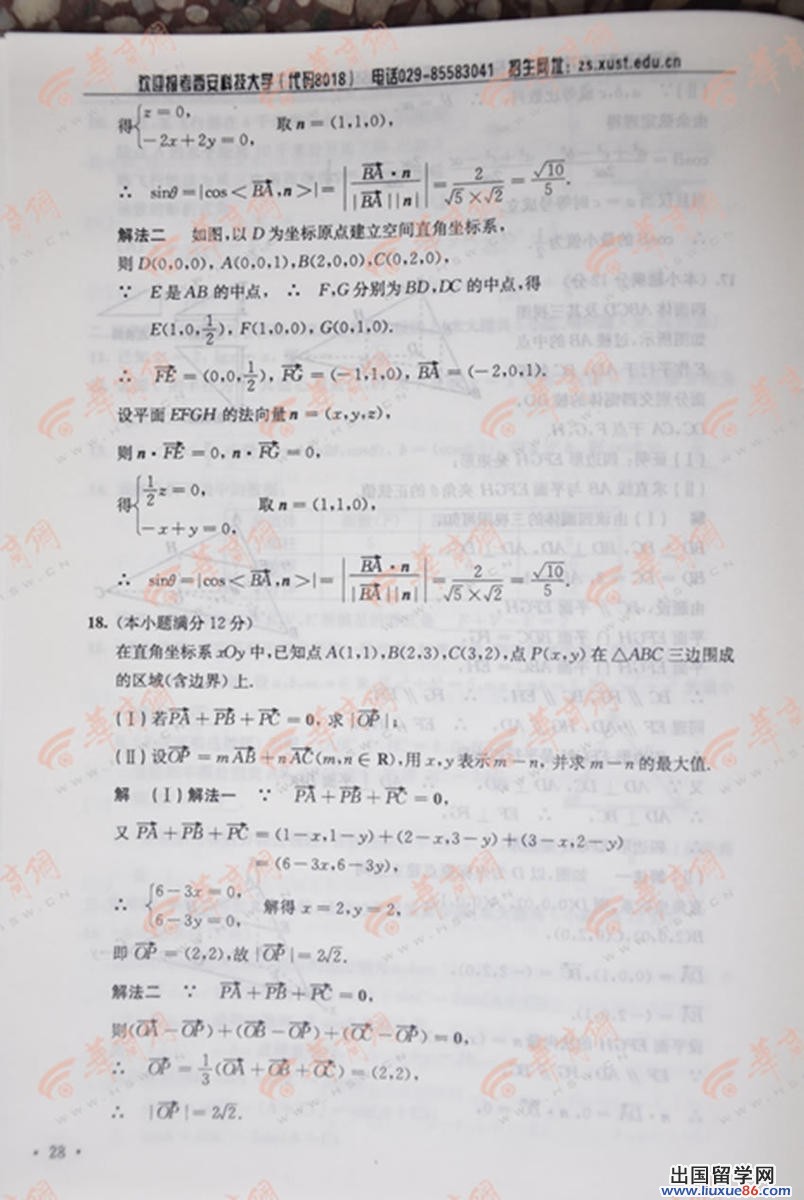 欢迎报考西安科技大学(代码8018) 电话029-85583041 招生网址:zs.xust.edu.cn
得{z=0, -2x+2y=0, 取n=(1,1,0),
∴ sinθ=|cos<BA→,n>|=|BA→·n / |BA→||n||=2/(√5×√2)=√10/5.
解法二 如图,以D为坐标原点建立空间直角坐标系,
则D(0,0,0),A(0,0,1),B(2,0,0),C(0,2,0),
∵ E是AB的中点, ∴ F,G分别为BD,DC的中点,得
E(1,0,1/2),F(1,0,0),G(0,1,0).
∴ FE→=(0,0,1/2),FG→=(-1,1,0),BA→=(-2,0,1).
设平面EFGH的法向量n=(x,y,z),
则n·FE→=0,n·FG→=0,
得{1/2z=0, -x+y=0, 取n=(1,1,0),
∴ sinθ=|cos<BA→,n>|=|BA→·n / |BA→||n||=2/(√5×√2)=√10/5.
18. (本小题满分12分)
在直角坐标系xOy中,已知点A(1,1),B(2,3),C(3,2),点P(x,y)在△ABC三边围成
的区域(含边界)上.
(Ⅰ)若PA→+PB→+PC→=0,求|OP→|;
(Ⅱ)设OP→=mAB→+nAC→(m,n∈R),用x,y表示m-n,并求m-n的最大值.
解 (Ⅰ)解法一 ∵ PA→+PB→+PC→=0,
又PA→+PB→+PC→=(1-x,1-y)+(2-x,3-y)+(3-x,2-y)
=(6-3x,6-3y),
∴ {6-3x=0, 6-3y=0, 解得x=2,y=2,
即OP→=(2,2),故|OP→|=2√2.
解法二 ∵ PA→+PB→+PC→=0,
则(OA→-OP→)+(OB→-OP→)+(OC→-OP→)=0,
∴ OP→=1/3(OA→+OB→+OC→)=(2,2),
∴ |OP→|=2√2.
· 28 ·
出国留学网
www.liuxue86.com